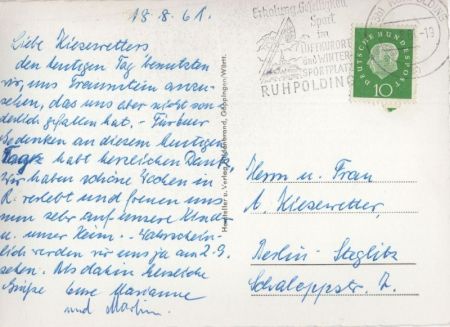 18.8.61.
Liebe Kiesewetters
den heutigen Tag benutzten
wir, uns Traunstein anzu-
sehen, das uns aber nicht son-
derlich gefallen hat. - Für Euer
Gedenken an diesem heutigen
Tage habt herzlichen Dank!
Wir haben schöne Wochen in
R. verlebt und freuen uns
nun sehr auf unsere Kinder
u. unser Heim. - Wahrschein-
lich werden wir uns ja am 2.9.
sehen. Bis dahin herzliche
Grüße Eure Marianne
und Martin.
Hersteller u. Verlag Göppingen/Württ.
Erholung, Geselligkeit
Sport
im
LUFTKURORT
und WINTER
SPORTPLATZ
RUHPOLDING
RUHPOLDING
-13
DEUTSCHE BUNDESPOST
10
Herrn u. Frau
A. Kiesewetter,
Berlin-Steglitz